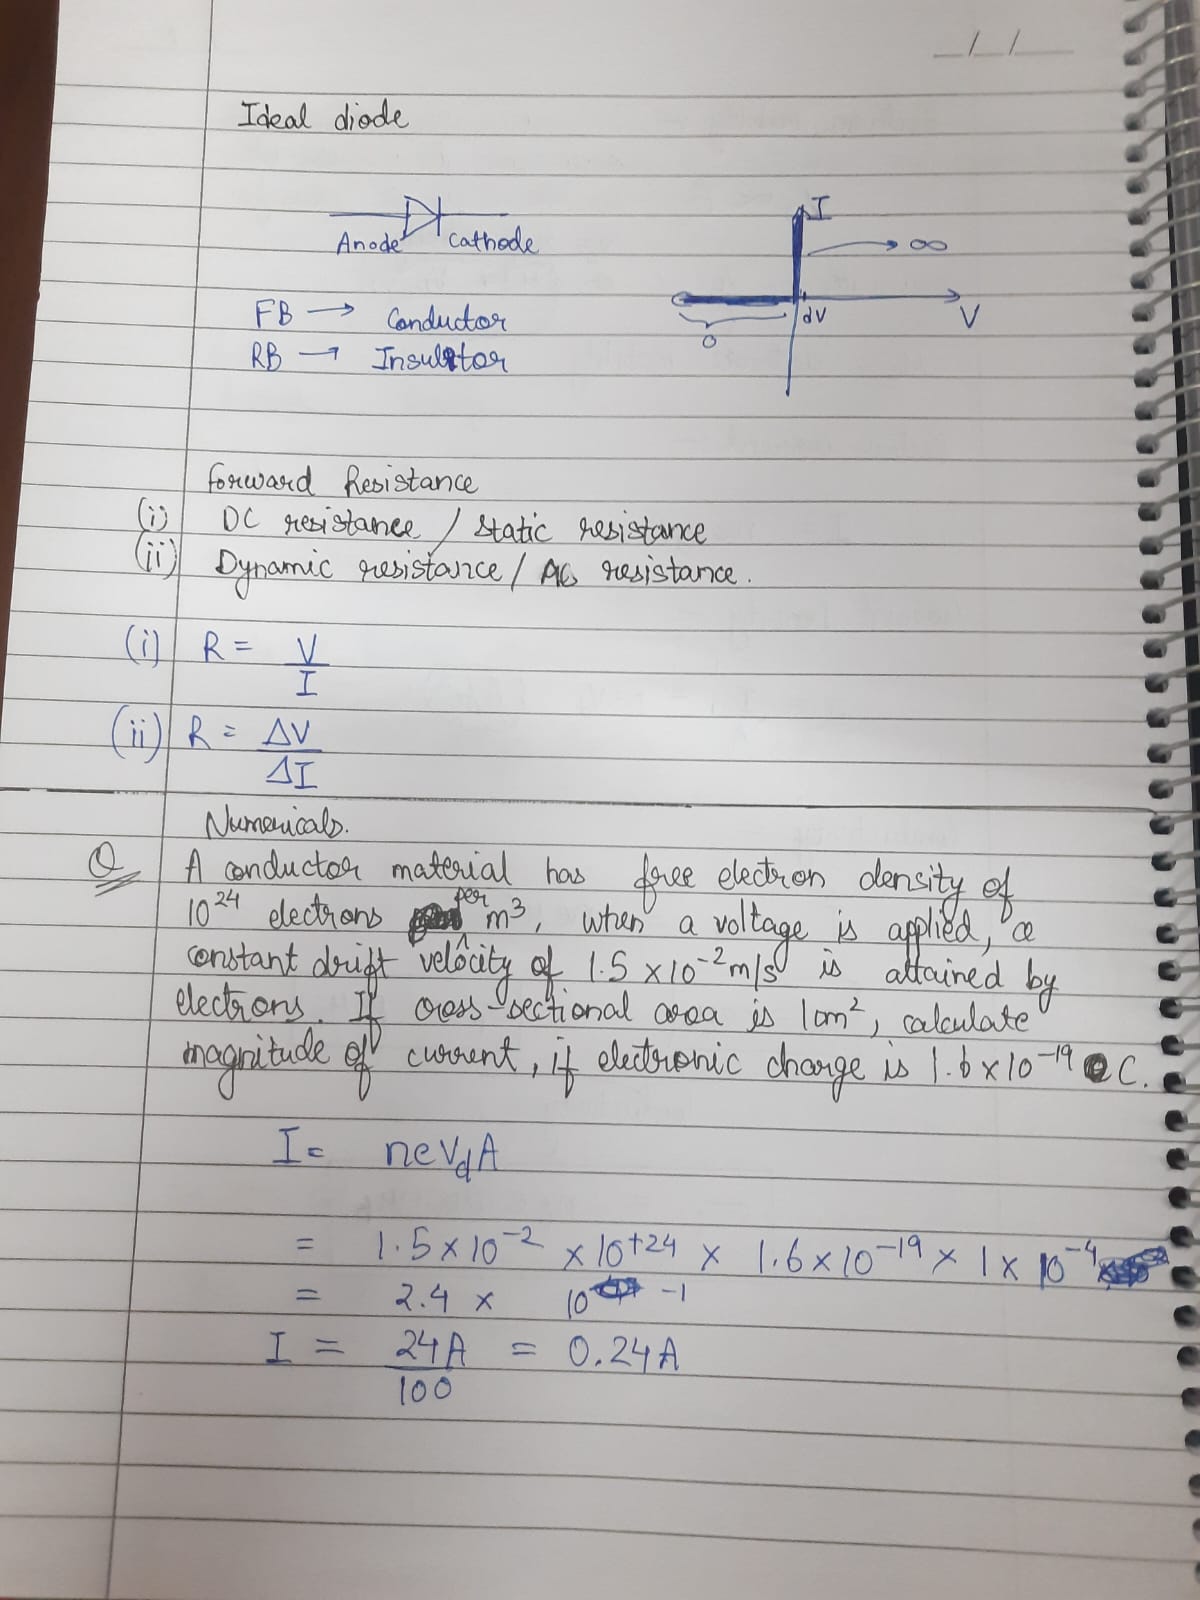 Ideal diode
I
Anode Cathode
∞
FB → Conductor
dV
V
0
RB → Insulator
Forward Resistance
(i) DC resistance / static resistance
(ii) Dynamic resistance / AC resistance.
(i) R = V
I
(ii) R = ΔV
ΔI
Numericals.
Q A conductor material has free electron density of
10^24 electrons per m^3, when a voltage is applied, a
constant drift velocity of 1.5 × 10^-2 m/s is attained by
electrons. If cross-sectional area is 1 cm^2, calculate
magnitude of current, if electronic charge is 1.6 × 10^-19 C.
I = neVdA
= 1.5 × 10^-2 × 10^+24 × 1.6 × 10^-19 × 1 × 10^-4
= 2.4 × 10^-1
I = 24A = 0.24A
100